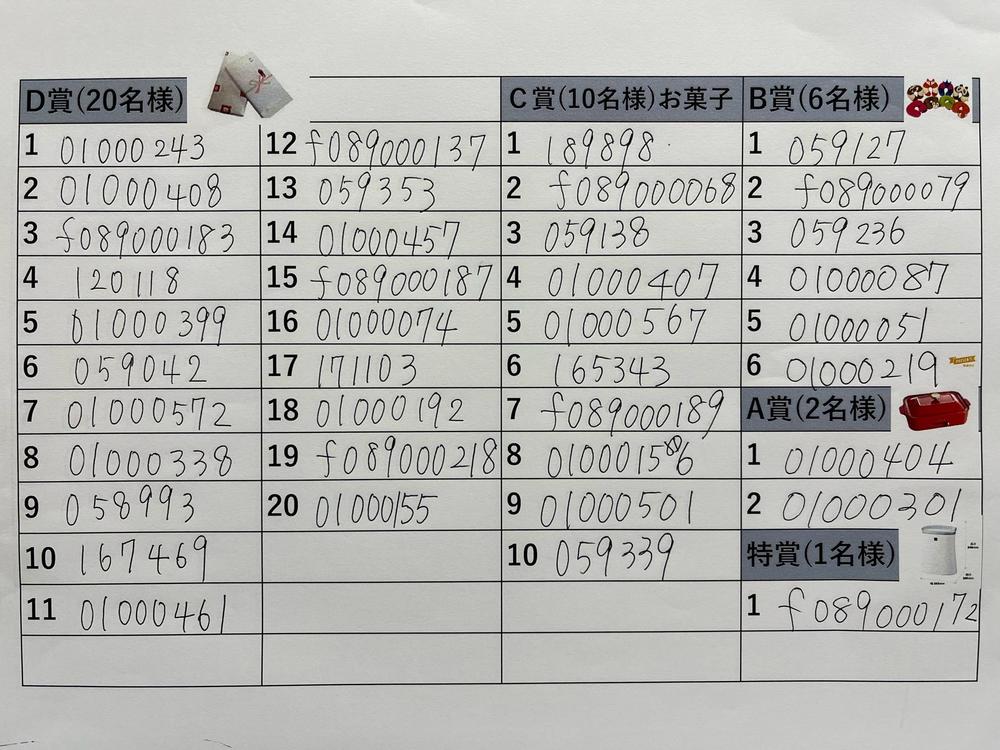 D賞(20名様)
1 01000243
2 01000408
3 f089000183
4 120118
5 01000399
6 059042
7 01000572
8 01000338
9 058993
10 167469
11 01000461
12 f089000137
13 059353
14 01000457
15 f089000187
16 01000074
17 171103
18 01000192
19 f089000218
20 01000155
C賞(10名様)お菓子
1 189898
2 f089000068
3 059138
4 01000407
5 01000567
6 165343
7 f089000189
8 01000156
9 01000501
10 059339
B賞(6名様)
1 059127
2 f089000079
3 059236
4 01000087
5 01000051
6 01000219
A賞(2名様)
1 01000404
2 01000301
特賞(1名様)
1 f089000172